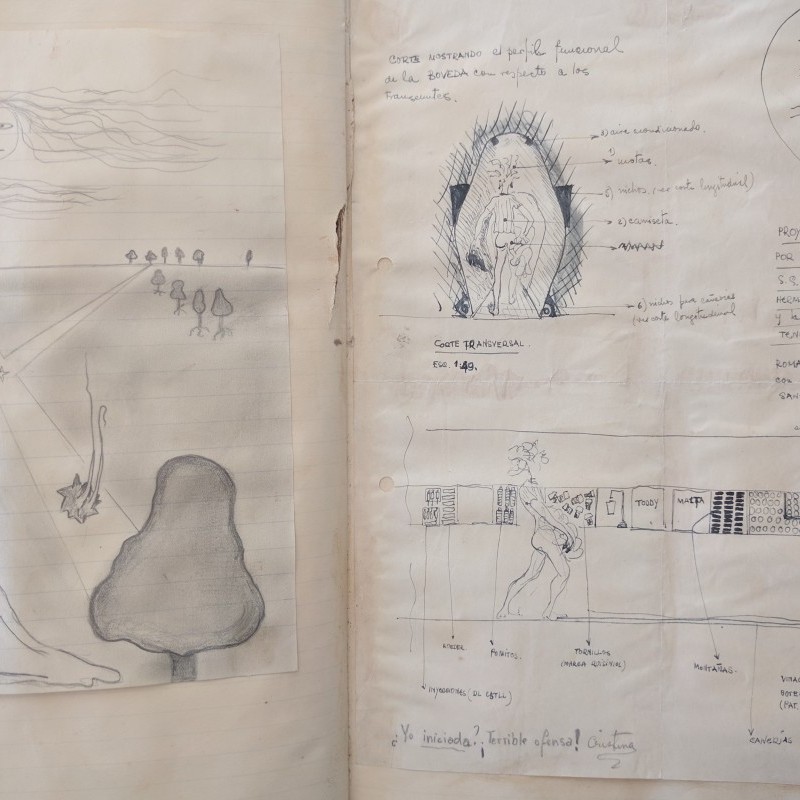 CORTE MOSTRANDO el perfil funcional
de la BOVEDA con respecto a los
transeuntes.
aire acondicionado.
motas.
nichos (ver corte longitudinal)
camiseta.
nichos para cañerias
(ver corte longitudinal
CORTE TRANSVERSAL.
ESC. 1:49.
PROY
POR
S.G.
HERM
y la
TEN
ROMA
con
SAN
TODDY
MALTA
POMITOS.
TORNILLOS
MONTAÑAS.
INYECTORES
CAÑERIAS
¿Yo iniciada? ¡Terrible ofensa! Cristina